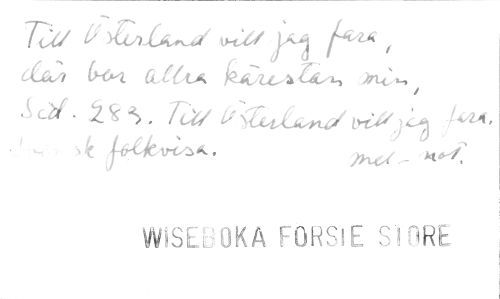 Till Österland vill jag fara,
där bor allra kärestan min,
Sid. 283. Till Österland vill jag fara.
Svensk folkvisa. mel-not.
WISEBOKA FORSTE STORE